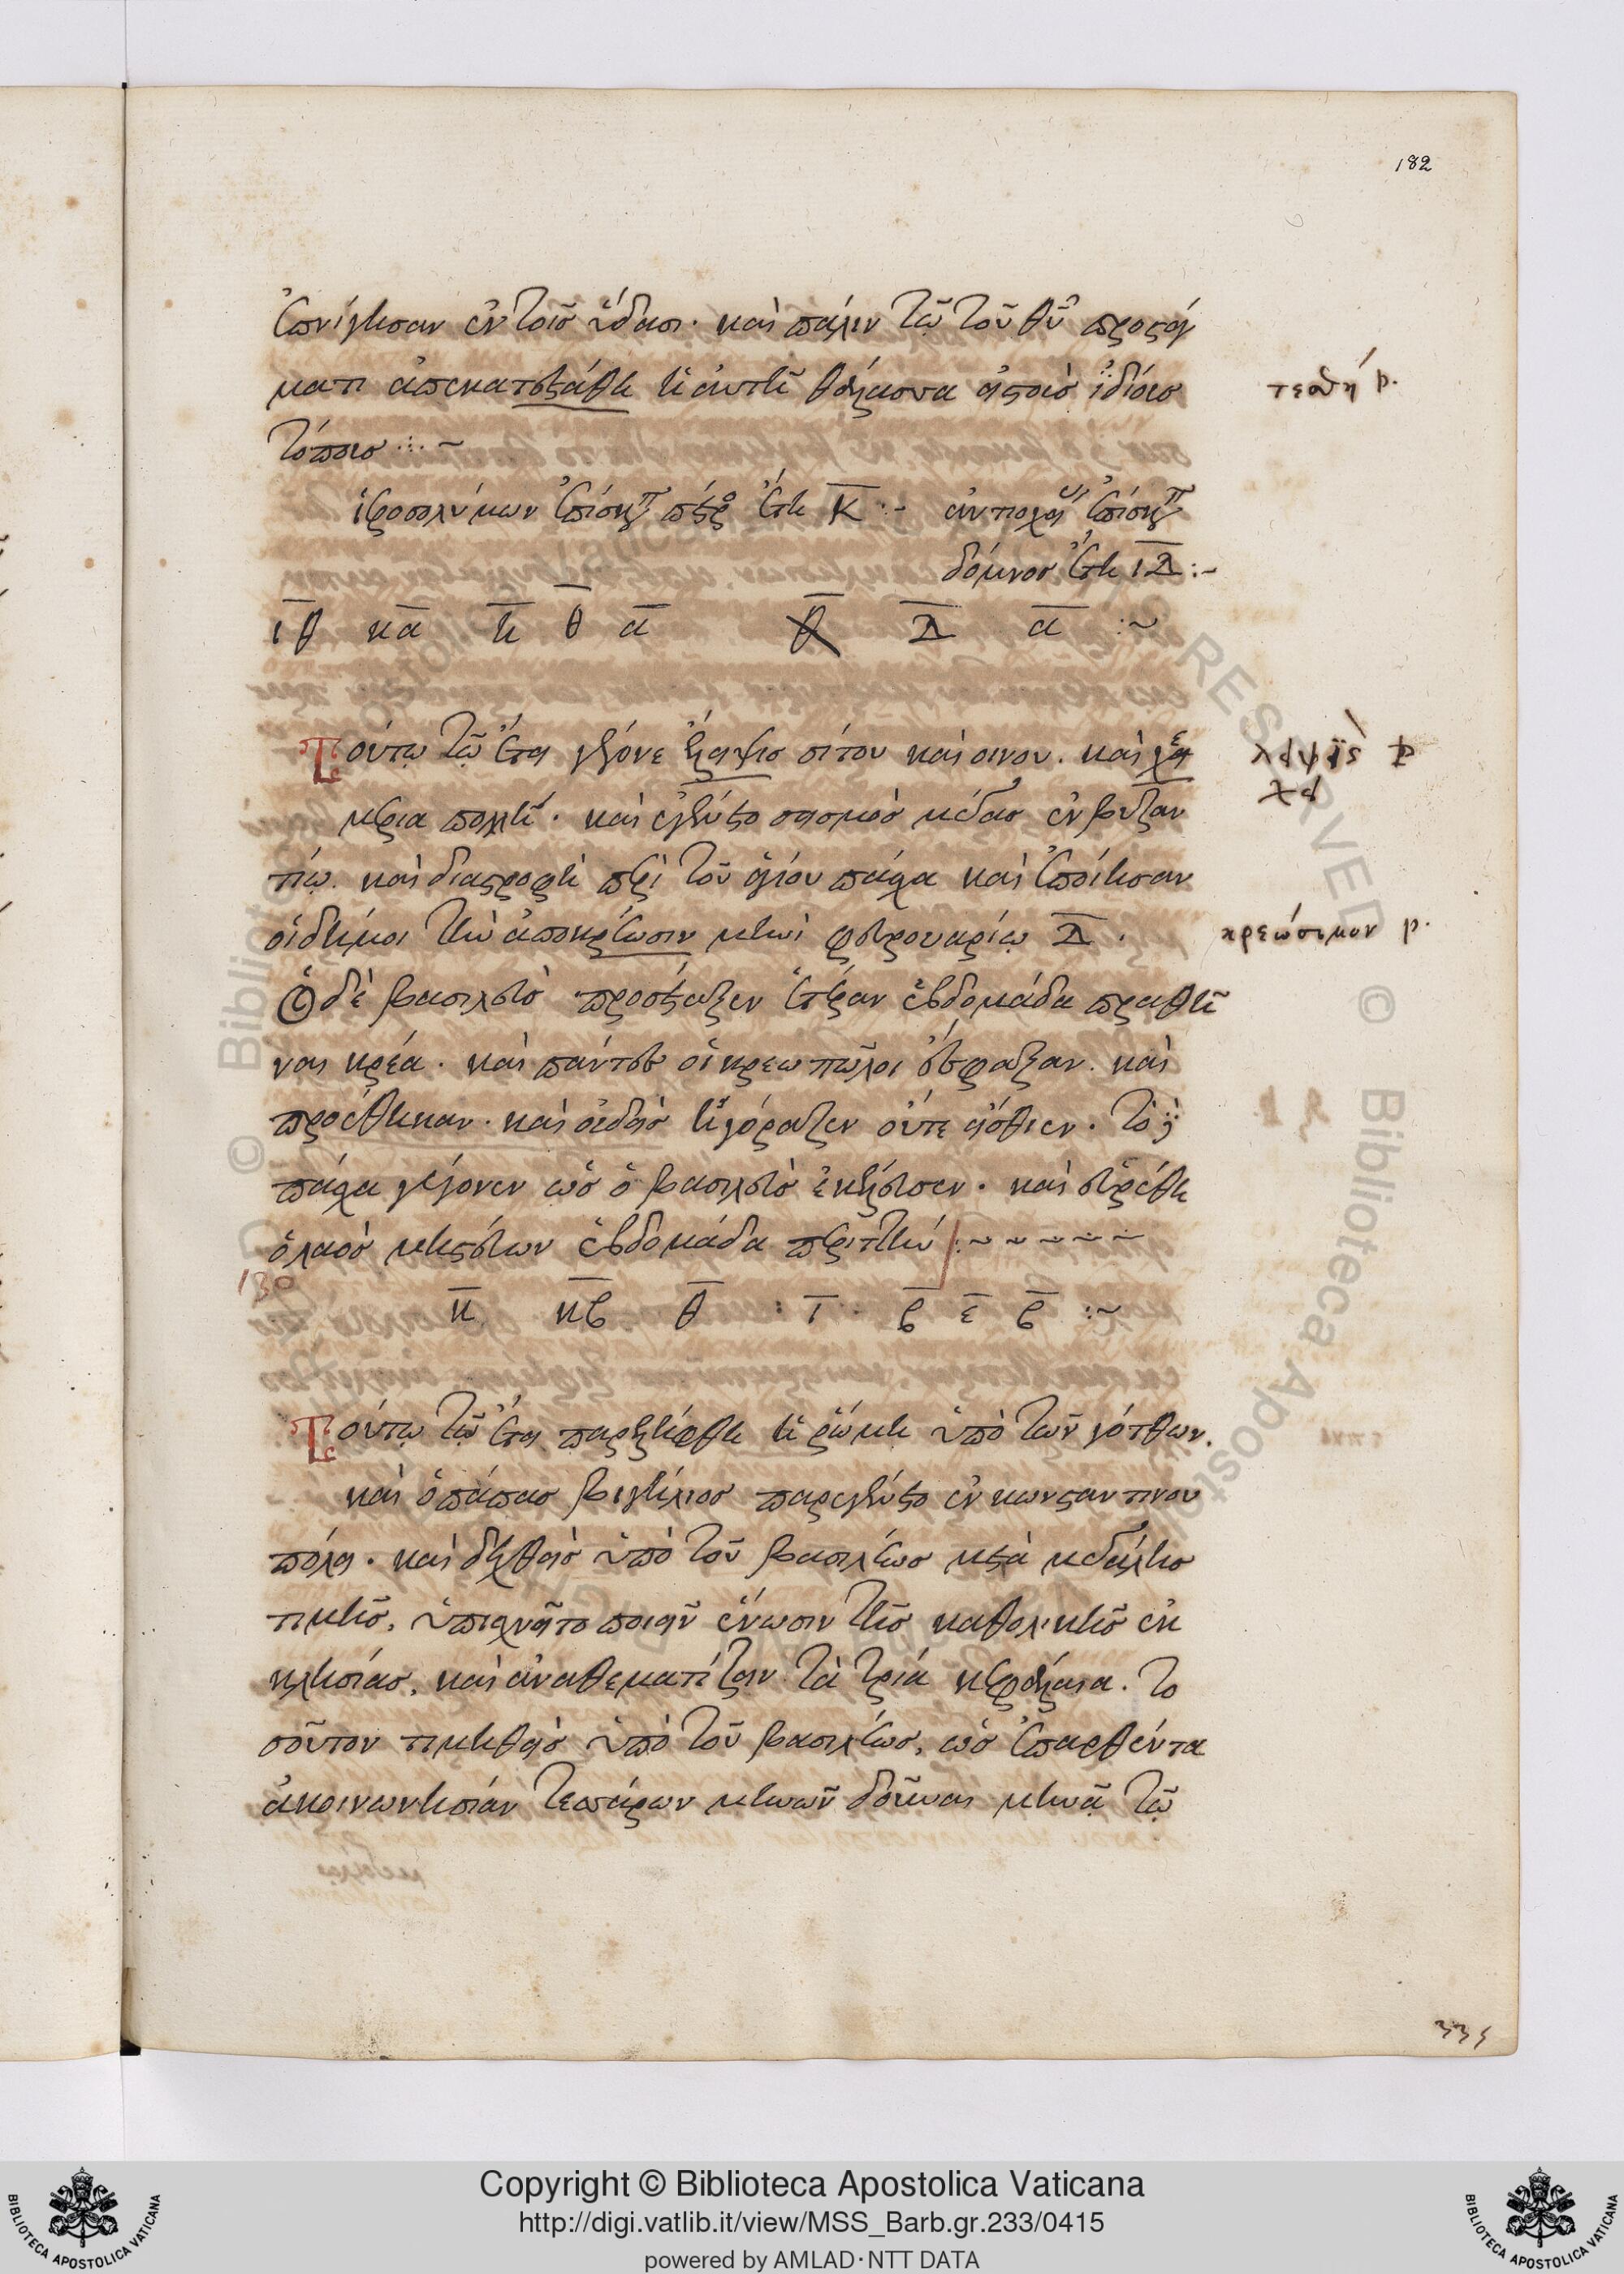 182
ἐπνίγησαν ἐν τοῖσ ὕδασι· καὶ πάλιν τῶ τοῦ θῦ προστάγ
ματι ἀπεκατεστάθη ἡ αὐτὴ θάλασσα εἰς τοὺσ ἰδίουσ
τόπουσ
ἱεροσολύμων ἐπίσκοπ πέτρο ἔτη κ :- ἀντιοχεί ἐπίσκοπ
δόμνοσ ἔτη ιδ :~
ιθ κα η θ α θ δ α :~
Τούτω τῶ ἔτει γέγονε ἔλειψισ σίτου καὶ οινου. καὶ χει
μέρια πολλὴ· καὶ ἐγένετο σεισμὸσ μέγασ ἐν βυζαν
τίω. καὶ διαστροφὴ περὶ τοῦ ἁγίου πάσχα καὶ ἐποίησαν
οἱ δῆμοι τὴν ἀποκρέωσιν μηνὶ φεβρουαρίω δ.
Ὁ δὲ βασιλεὺσ προσέταξεν ἑτέραν ἑβδομάδα πραθῆ
ναι κρέα. καὶ πάντεσ οἱ κρεωπῶλοι ἔσφαξαν. καὶ
προέθηκαν. καὶ οὐδεὶσ ἠγόραζεν οὔτε ἤσθιεν. τὸ δὲ
πάσχα γέγονεν ὡσ ὁ βασιλεὺσ ἐκέλευσεν. καὶ εὑρέθη
ὁ λαὸσ νηστεύων ἑβδομάδα περιττὴν :~ ~ ~ ~ ~
130
κ κβ θ : ι · β ε β :~
Τούτω τῶ ἔτει παρελήφθη ἡ ῥώμη ὑπὸ τῶν γότθων.
καὶ ὁ πάπασ βιγήλιοσ παρεγένετο ἐν κωνσταντινου
πόλει. καὶ δεχθεὶσ ὑπὸ τοῦ βασιλέωσ μετὰ μεγάλησ
τιμῆσ, ὑπισχνεῖτο ποιεῖν ἕνωσιν τῆσ καθολικῆσ ἐκ
κλησίασ, καὶ ἀναθεματίζειν τὰ τρία κεφάλαια. το
σοῦτον τιμηθεὶσ ὑπὸ τοῦ βασιλέωσ, ὡσ ἐπαρθέντα
ἀκοινωνησίαν τεσσάρων μηνῶν δοῦναι μηνᾶ τῶ
τεστάθη p.
λειψις p
χει
κρεώσιμον p.
335
Copyright © Biblioteca Apostolica Vaticana
http://digi.vatlib.it/view/MSS_Barb.gr.233/0415
powered by AMLAD·NTT DATA
BIBLIOTECA APOSTOLICA VATICANA
BIBLIOTECA APOSTOLICA VATICANA